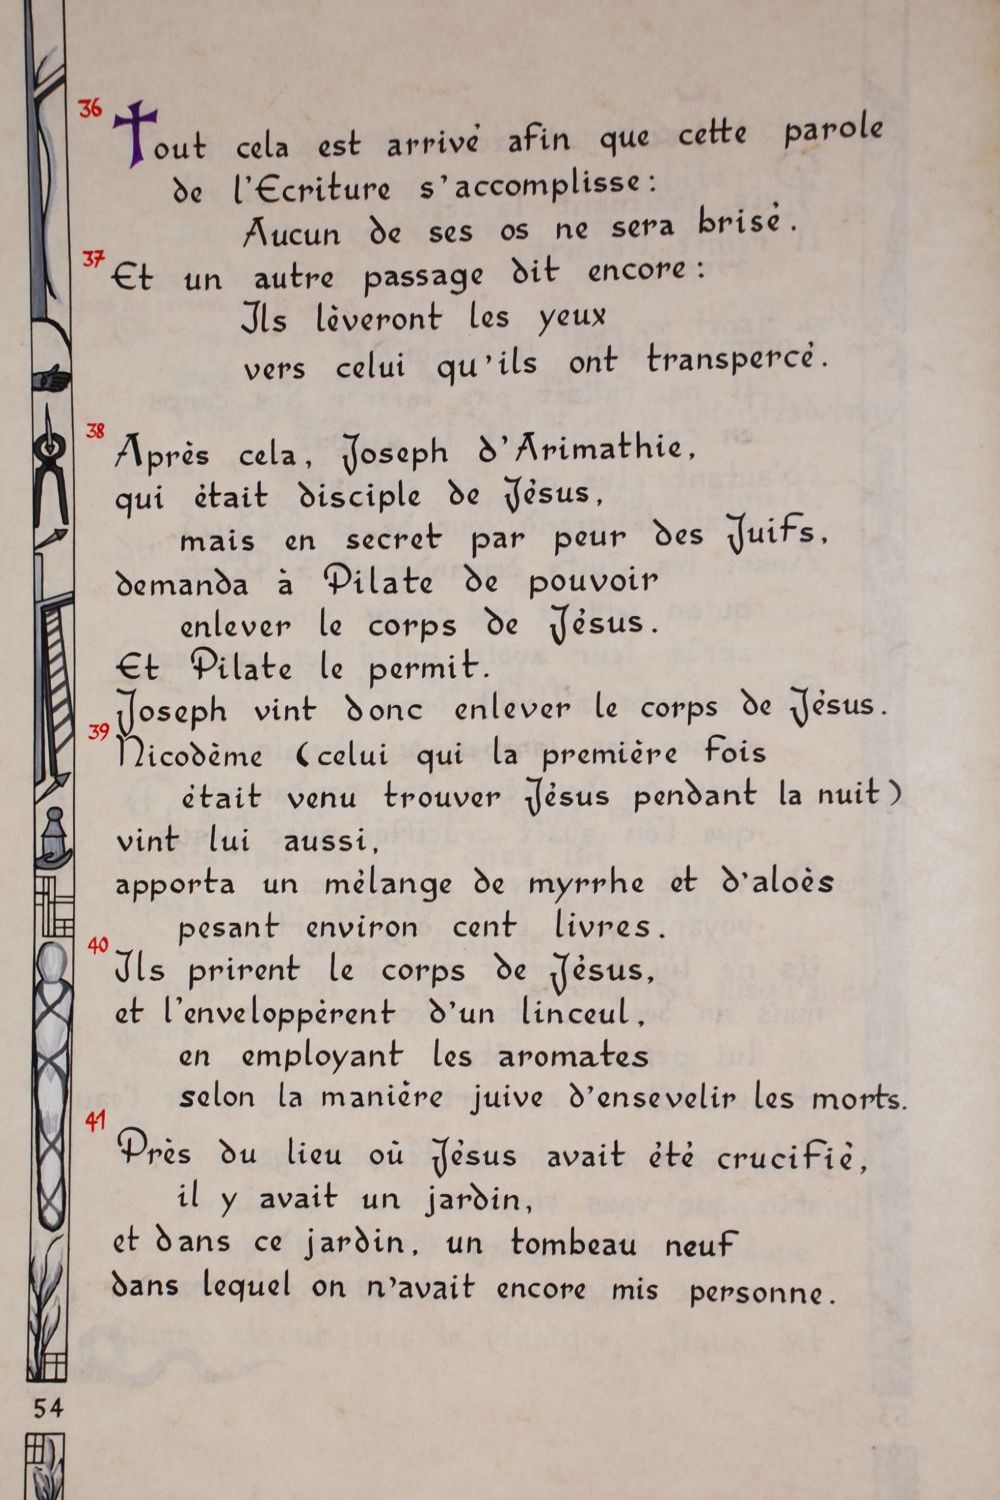 36 Tout cela est arrivé afin que cette parole
de l'Ecriture s'accomplisse :
Aucun de ses os ne sera brisé.
37 Et un autre passage dit encore :
Ils lèveront les yeux
vers celui qu'ils ont transpercé.
38 Après cela, Joseph d'Arimathie,
qui était disciple de Jésus,
mais en secret par peur des Juifs,
demanda à Pilate de pouvoir
enlever le corps de Jésus.
Et Pilate le permit.
Joseph vint donc enlever le corps de Jésus.
39 Nicodème (celui qui la première fois
était venu trouver Jésus pendant la nuit)
vint lui aussi,
apporta un mélange de myrrhe et d'aloès
pesant environ cent livres.
40 Ils prirent le corps de Jésus,
et l'enveloppèrent d'un linceul,
en employant les aromates
selon la manière juive d'ensevelir les morts.
41 Près du lieu où Jésus avait été crucifié,
il y avait un jardin,
et dans ce jardin, un tombeau neuf
dans lequel on n'avait encore mis personne.
54